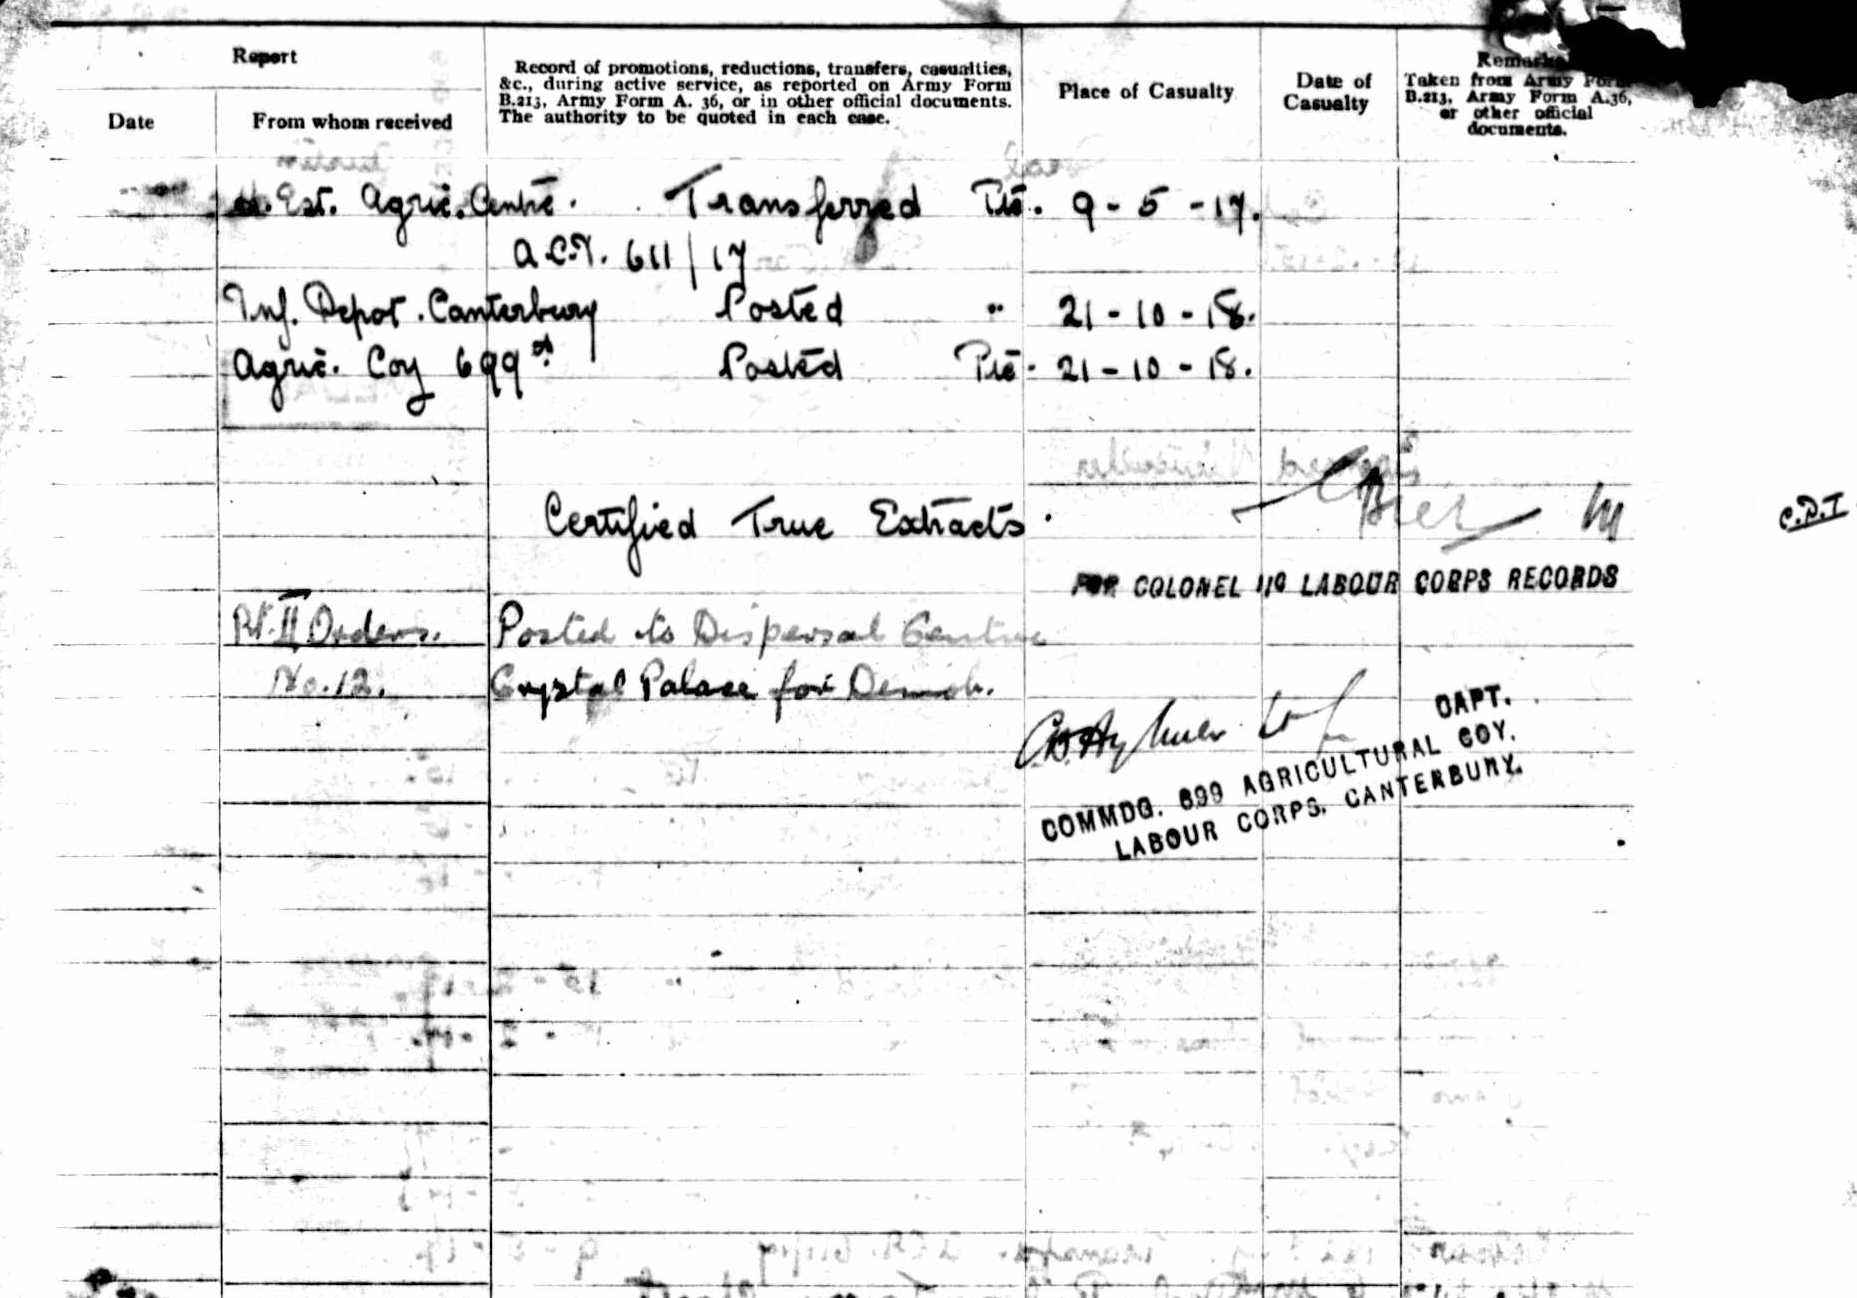 Report
Date
From whom received
Record of promotions, reductions, transfers, casualties,
&c., during active service, as reported on Army Form
B.213, Army Form A. 36, or in other official documents.
The authority to be quoted in each case.
Place of Casualty
Date of
Casualty
Remarks
Taken from Army Form
B.213, Army Form A.36,
or other official
documents.
Est. Agric. Centre. Transferred Pte. 9-5-17.
A.C.I. 611/17
Inf. Depot. Canterbury Posted " 21-10-18.
Agric. Coy 699th Posted Pte. 21-10-18.
Certified True Extracts.
C.P.I
FOR COLONEL I/C LABOUR CORPS RECORDS
Pt. II Orders. Posted to Dispersal Centre
No. 12. Crystal Palace for Demob.
CAPT.
COMMDG. 699 AGRICULTURAL COY.
LABOUR CORPS, CANTERBURY.